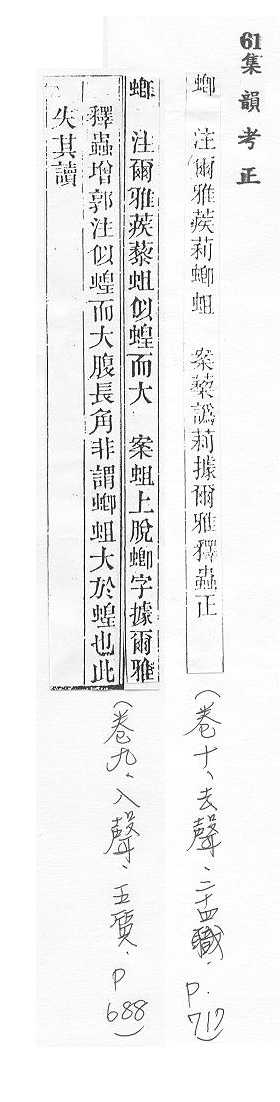 61集韻考正
蝍　注爾雅蒺莉蝍蛆　案蔾譌莉據爾雅釋蟲正
（卷十、去聲、二十四職、P.717）
蝍　注爾雅蒺藜蛆似蝗而大　案蛆上脫蝍字據爾雅
釋蟲增郭注似蝗而大腹長角非謂蝍蛆大於蝗也此
失其讀
（卷九、入聲、五質、P688）